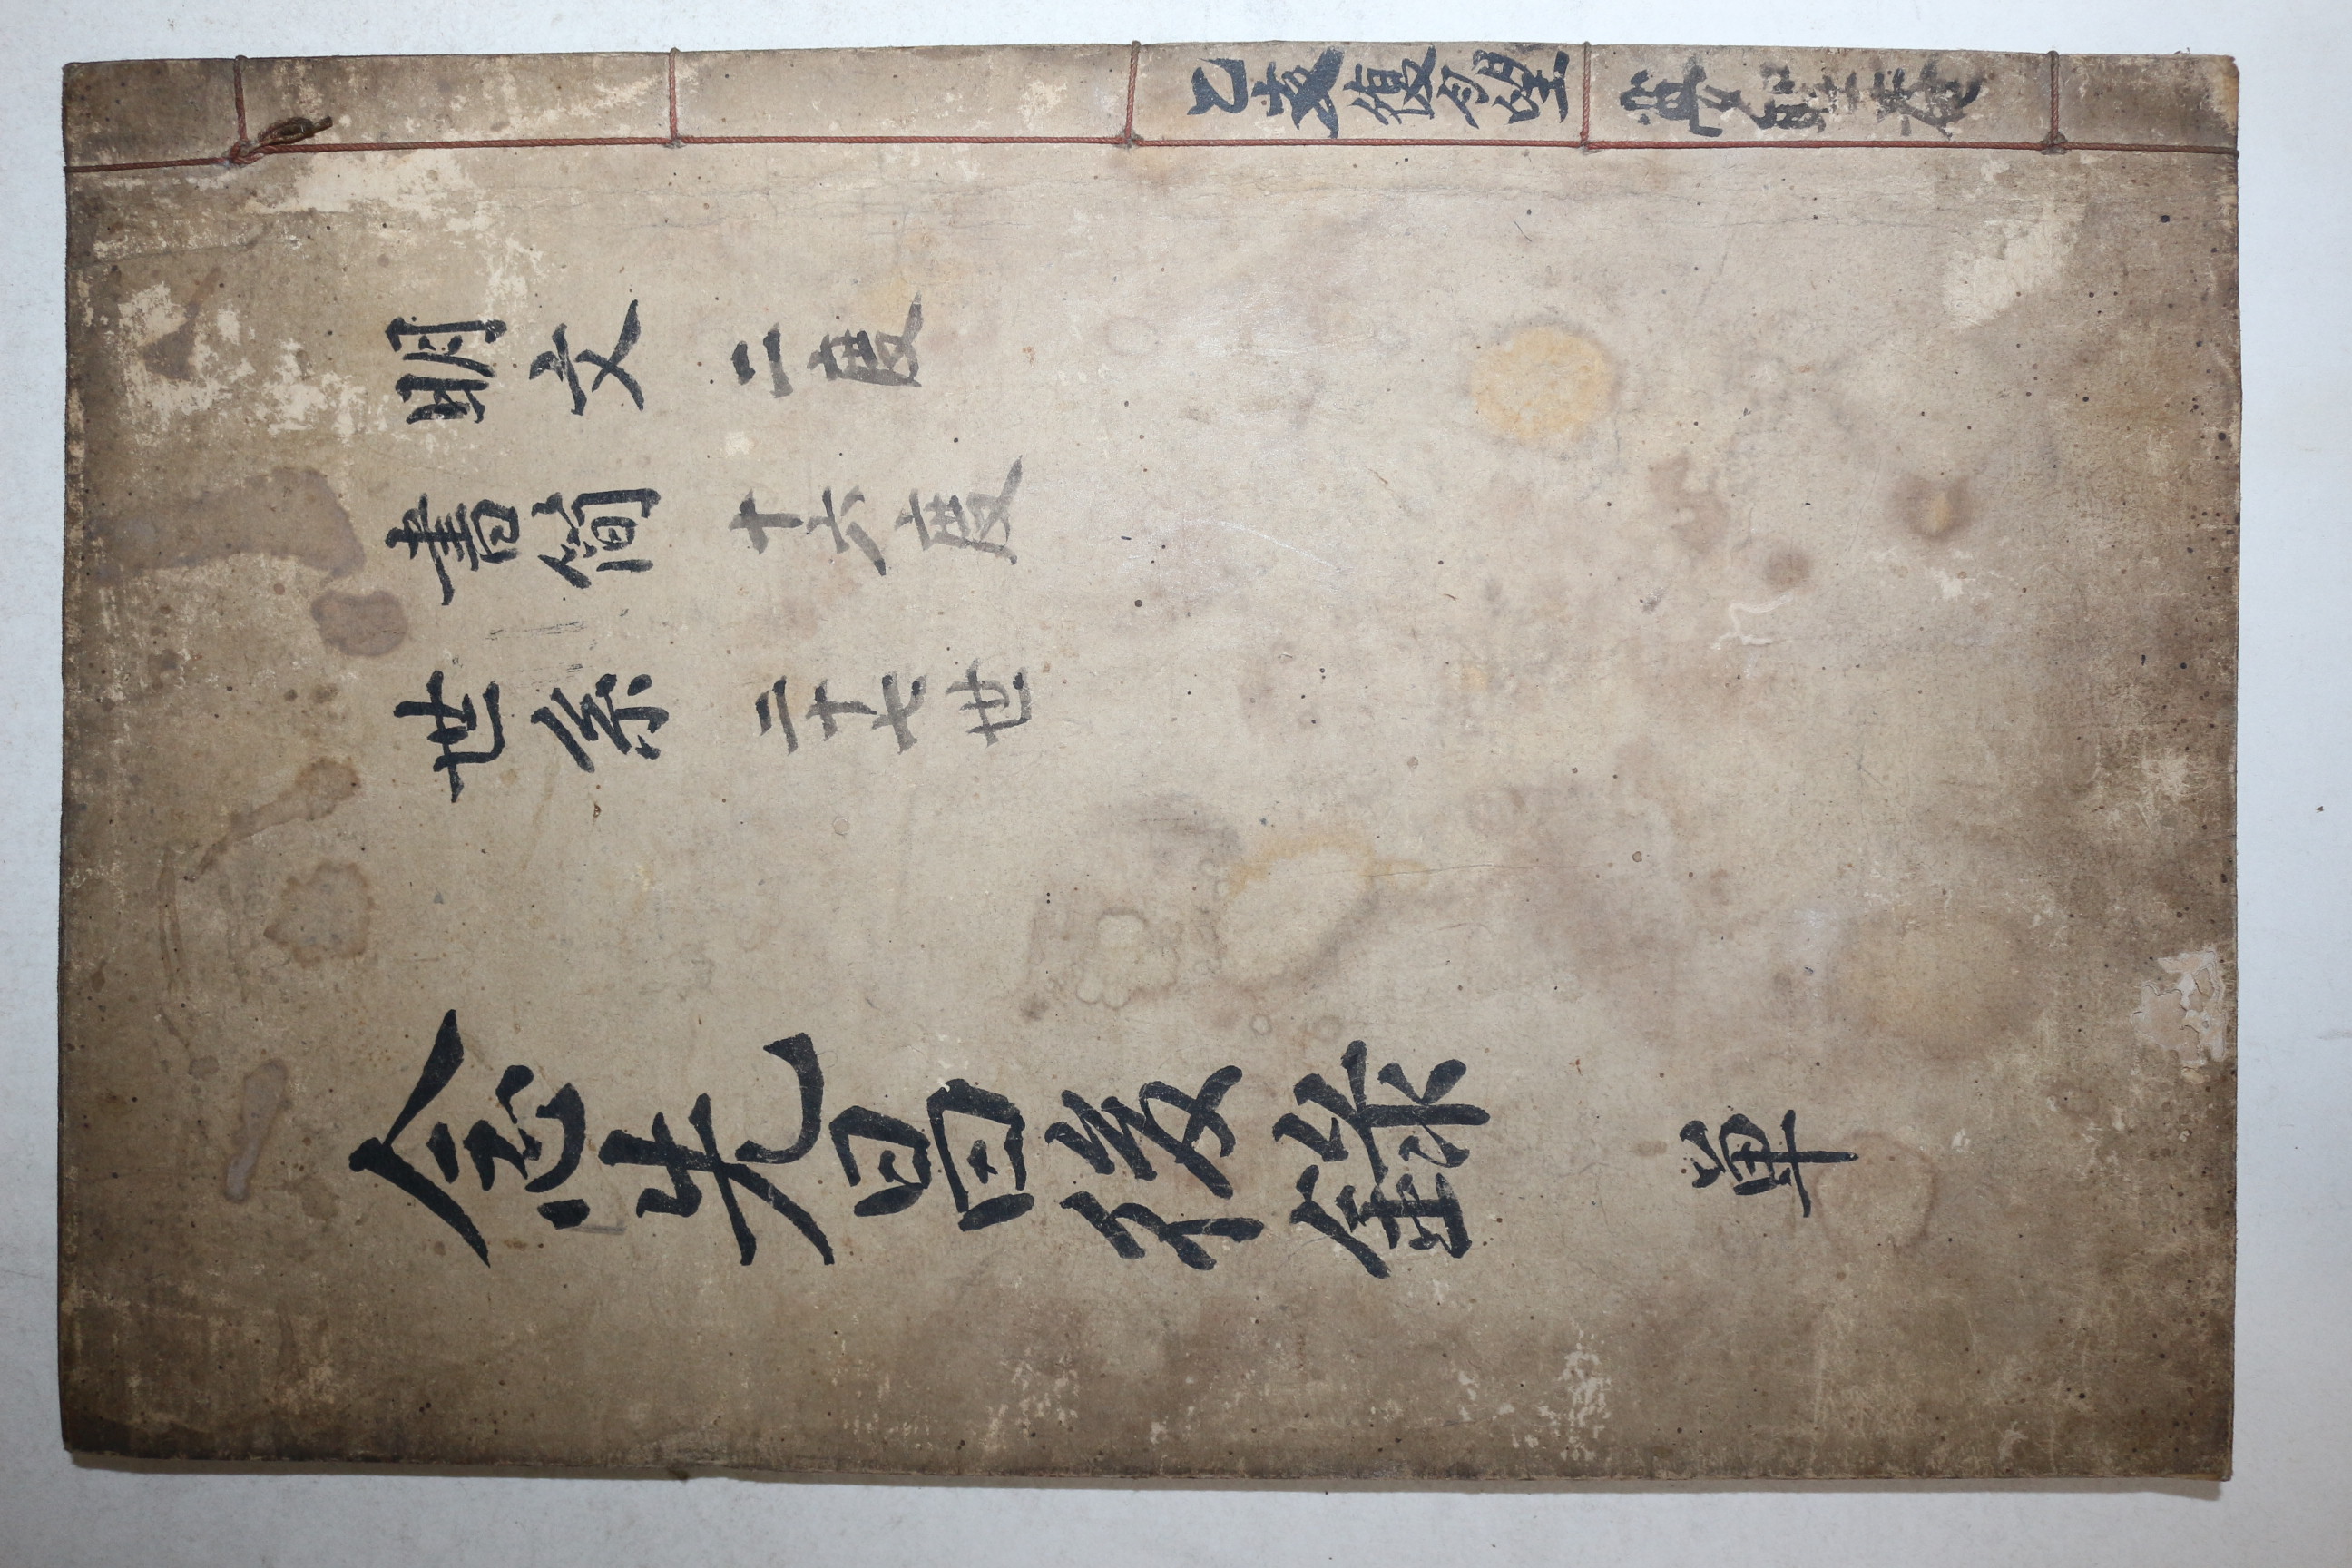 乙亥復月望
明文 二度
書簡 十六度
世系 二十七世
念先昌後錄 單